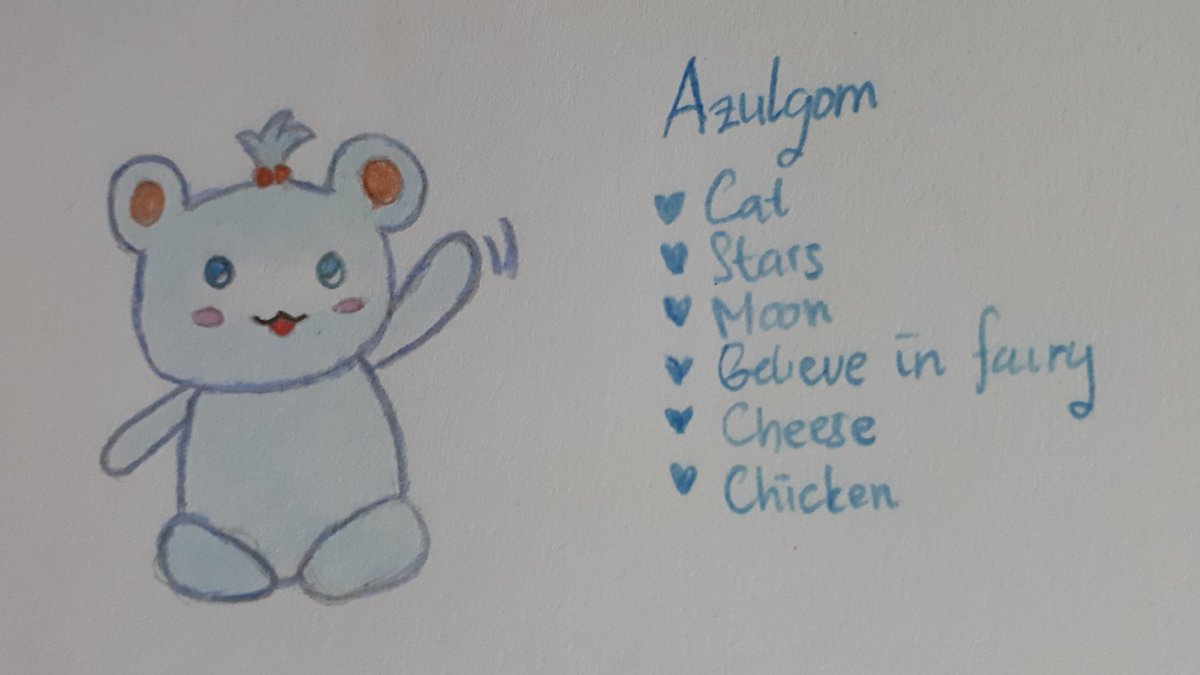 Azulgom
Cat
Stars
Moon
Believe in fairy
Cheese
Chicken